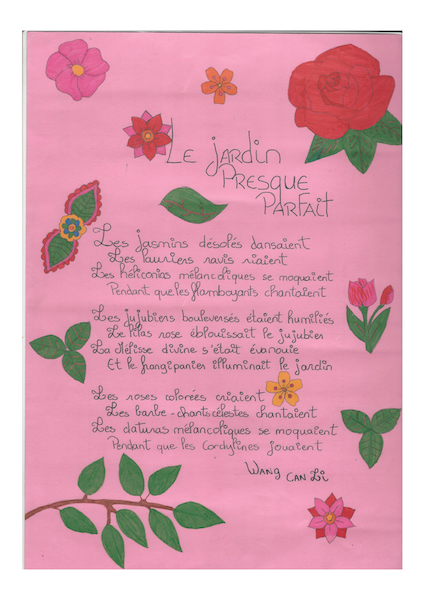 Le jardin
Presque
Parfait
Les jasmins désolés dansaient
Les lauriers ravis riaient
Les héliconias mélancoliques se moquaient
Pendant que les flamboyants chantaient
Les jujubiers bouleversés étaient humiliés
Le lilas rose éblouissait le jujubier
La Mélisse divine s'était évanouie
Et le frangipanier illuminait le jardin
Les roses colorées criaient
Les barbe-chants célestes chantaient
Les daturas mélancoliques se moquaient
Pendant que les Cordylines jouaient
Wang Can Li